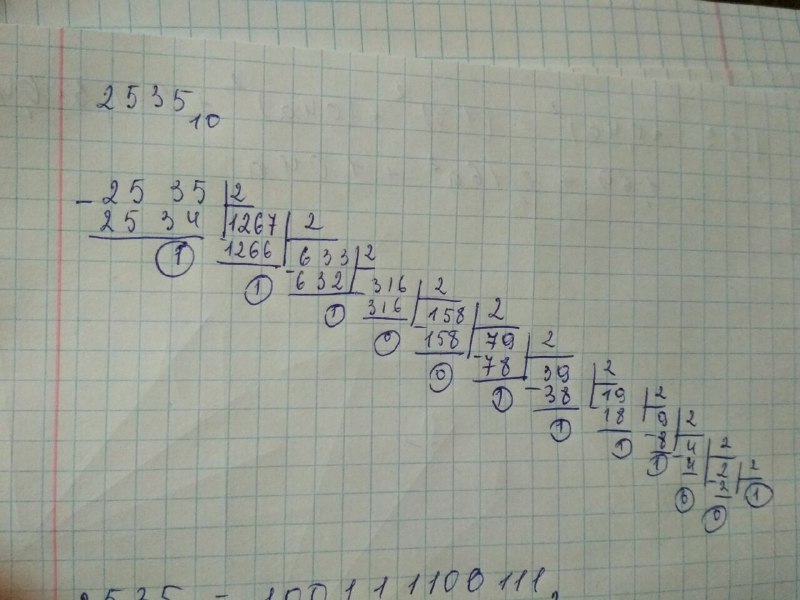 2535₁₀
- 2535 | 2
2534 | 1267 | 2
① 1266 | - 633 | 2
① 632 | 316 | 2
① 316 | - 158 | 2
⓪ 158 | - 79 | 2
⓪ 78 | - 39 | 2
① 38 | 19 | 2
① 18 | - 9 | 2
① 8 | - 4 | 2
① 4 | - 2 | 2
⓪ 2 | ①
⓪
2535 = 100111100111₂